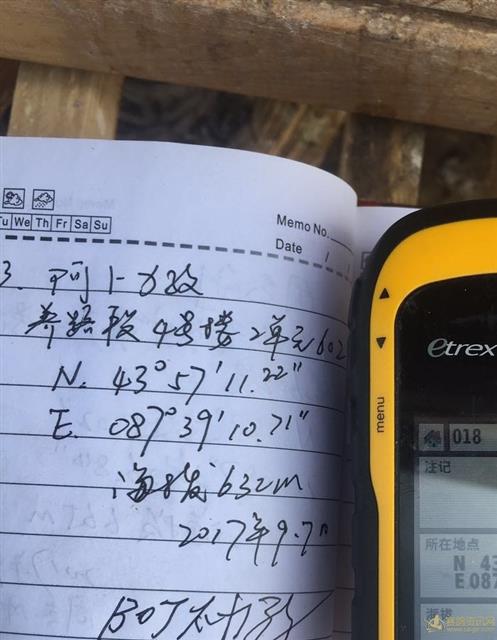 Tu We Th Fr Sa Su
Memo No.
Date / /
3. 阿
养路段4号楼2单元602
N. 43°57'11.22"
E. 087°39'10.71"
海拔632m
2017年9.7"
etrex
menu
018
注记
所在地点
N 43
E 087
海拔